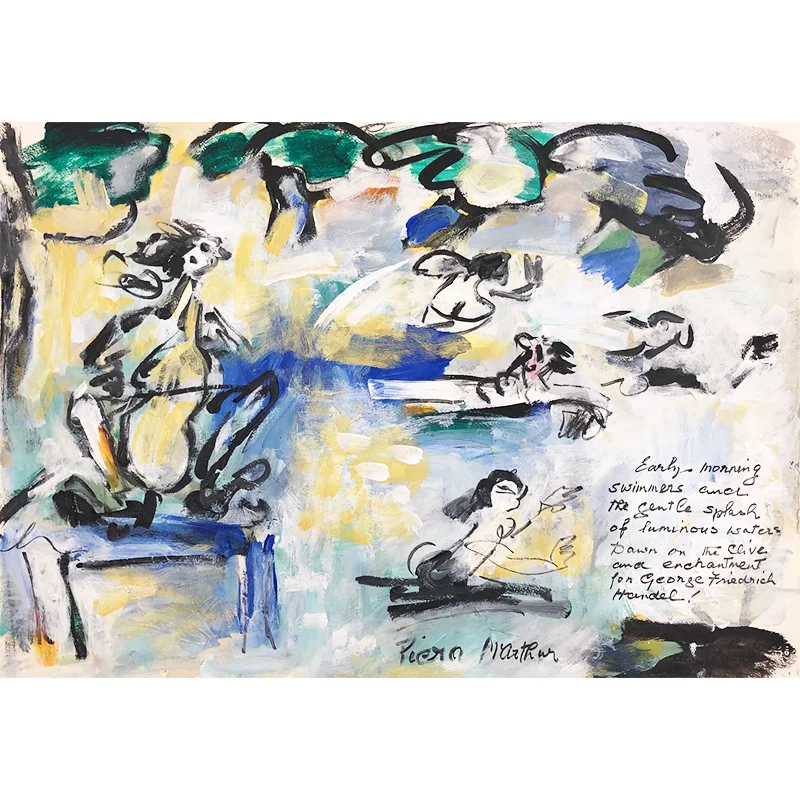 Early morning
swimmers and
the gentle splash
of luminous waters
Dawn on the Clive
and enchantment
for George Friedrich
Handel!
Piera McArthur